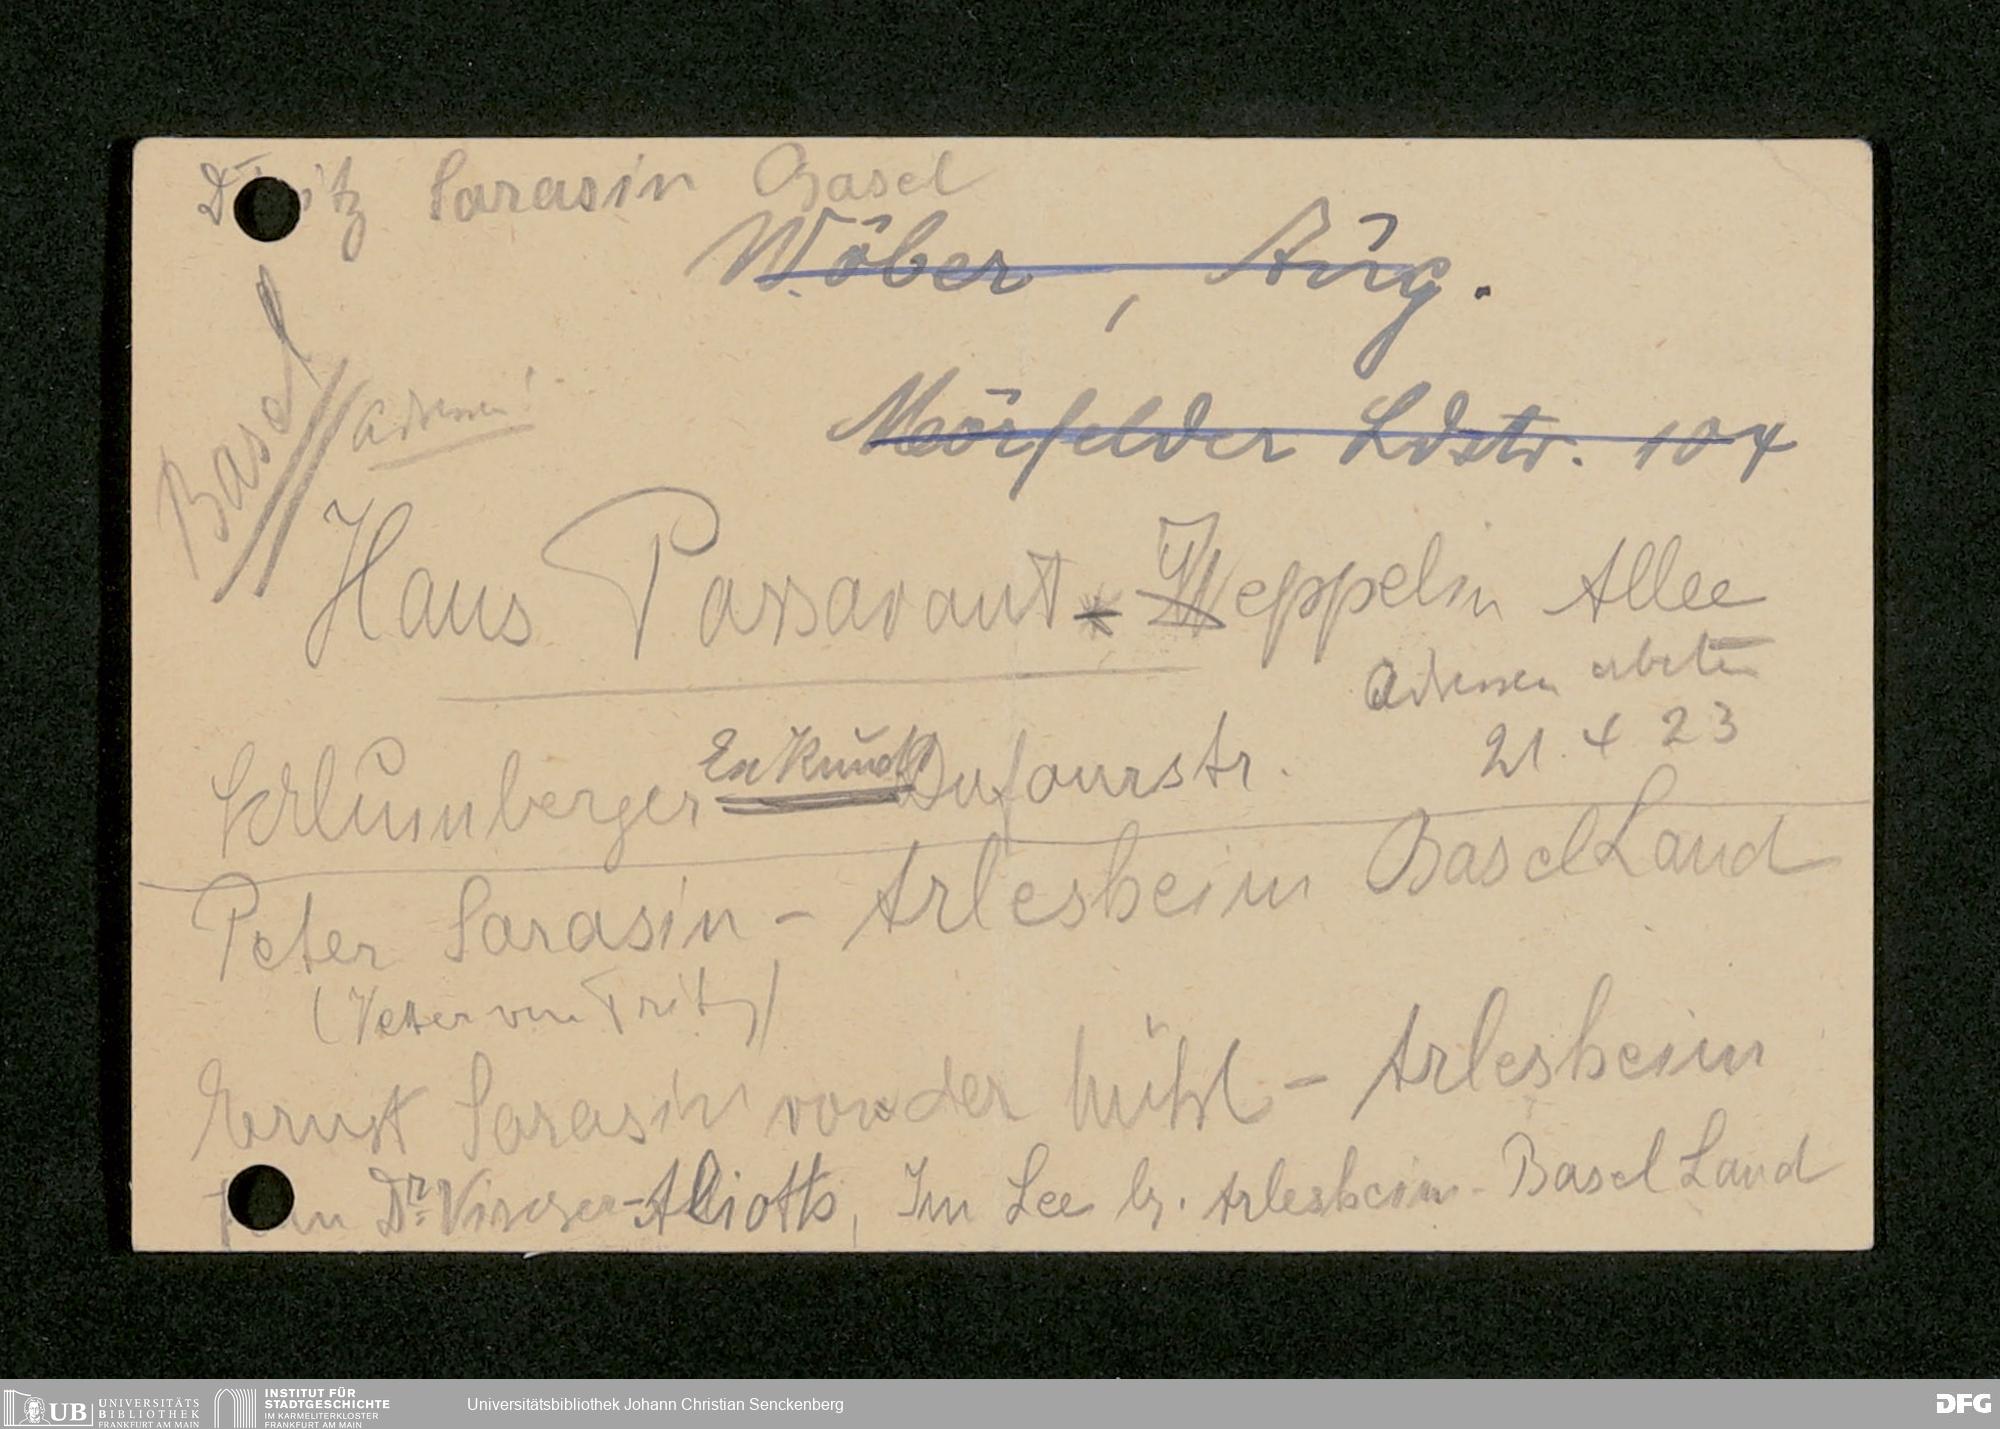 Dr Fritz Sarasin Basel
Wöber, Aug.
Basel
Adressen!
Mörfelder Ldstr. 104
Hans Passavant Zeppelin Allee
Adressen erbeten
21. 4 23
Schlumberger Dufourstr.
Peter Sarasin - Arlesheim Basel Land
(Vetter von Fritz)
Ernst Sarasin von der Mühl - Arlesheim
Dr. Vischer-Alioth, Im Lee b. Arlesheim - Basel Land
UB UNIVERSITÄTS BIBLIOTHEK FRANKFURT AM MAIN
INSTITUT FÜR STADTGESCHICHTE IM KARMELITERKLOSTER FRANKFURT AM MAIN
Universitätsbibliothek Johann Christian Senckenberg
DFG